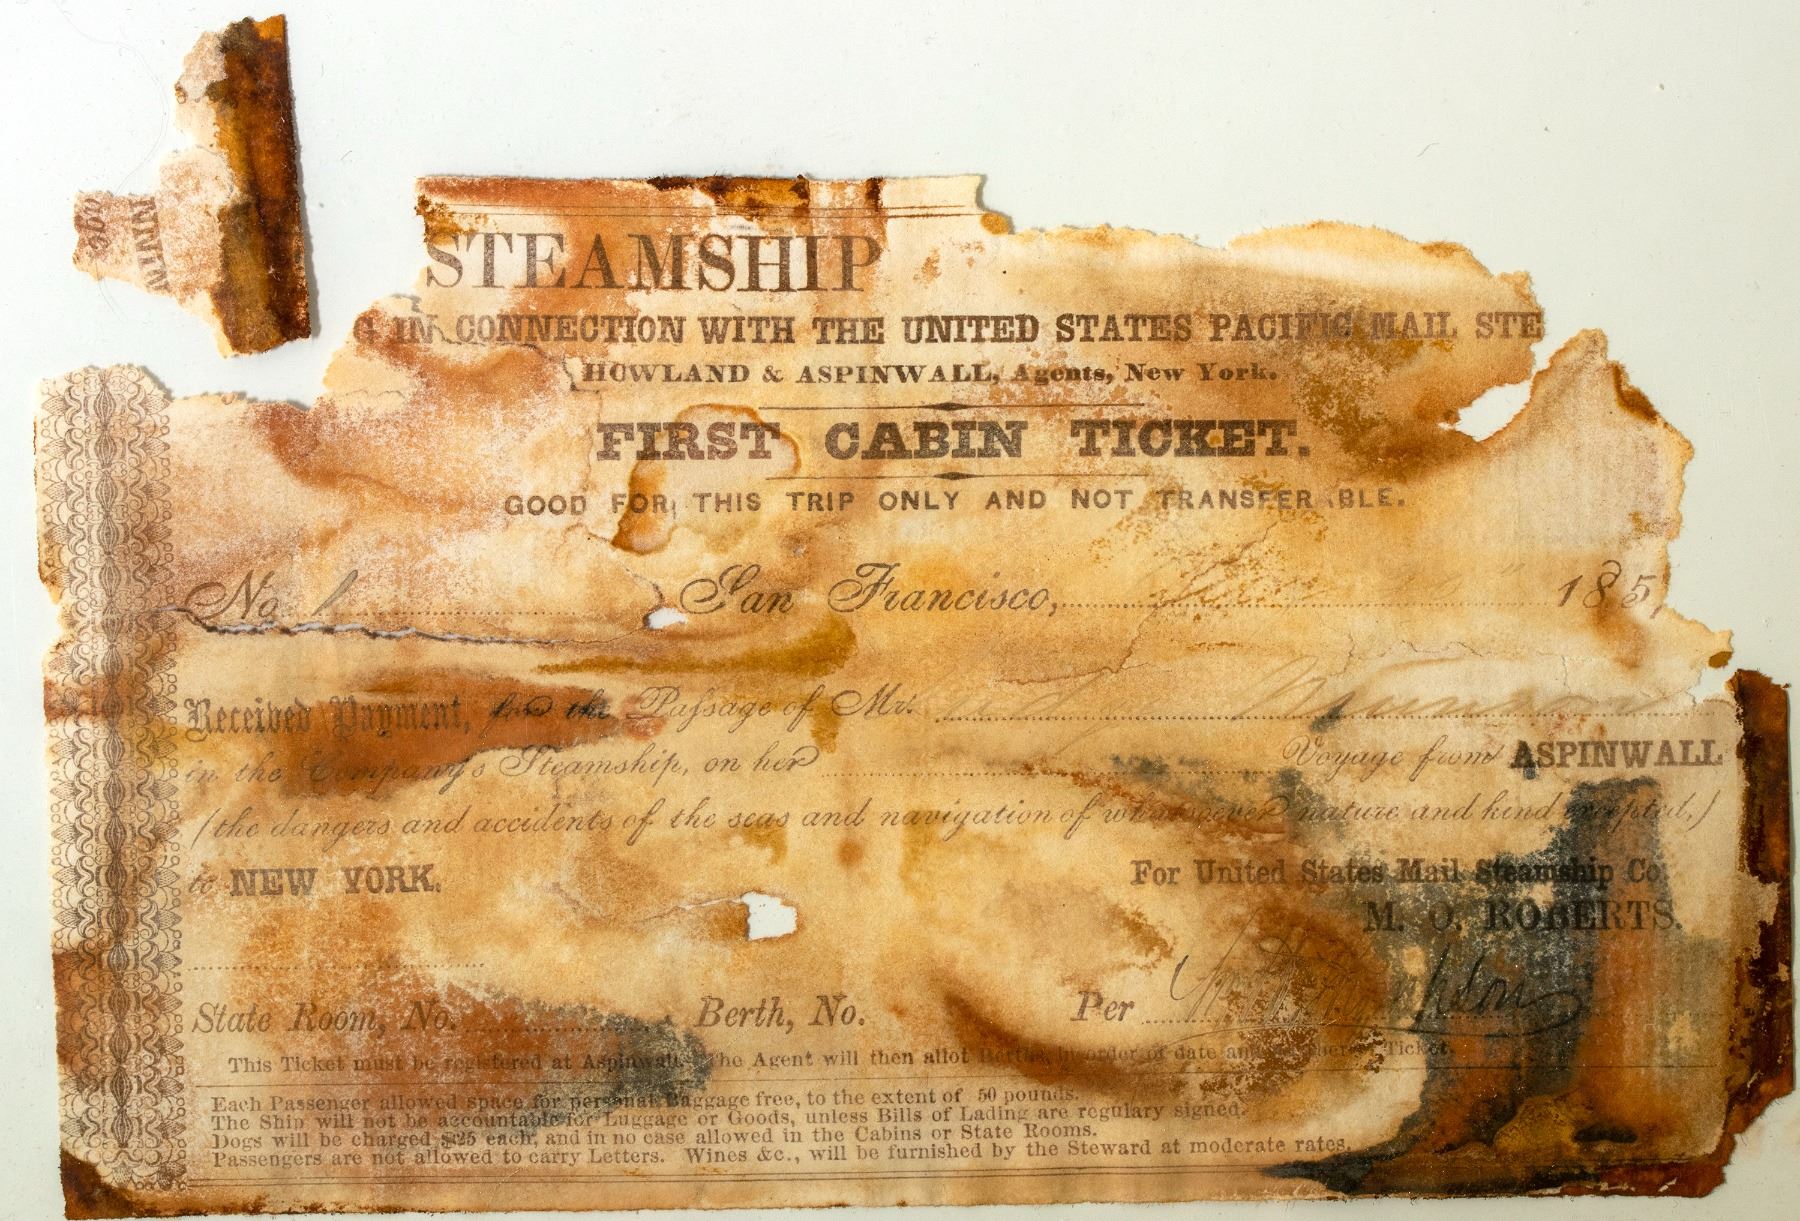 STEAMSHIP
G IN CONNECTION WITH THE UNITED STATES PACIFIC MAIL STE
HOWLAND & ASPINWALL, Agents, New York.
FIRST CABIN TICKET.
GOOD FOR THIS TRIP ONLY AND NOT TRANSFERABLE.
No. San Francisco, 185
Received Payment, for the Passage of Mr.
in the Company's Steamship, on her Voyage from ASPINWALL
(the dangers and accidents of the seas and navigation of whatsoever nature and kind excepted,)
to NEW YORK.
For United States Mail Steamship Co.
M. O. ROBERTS.
State Room, No. Berth, No. Per
This Ticket must be registered at Aspinwall. The Agent will then allot Berths, in order of date and Ticket.
Each Passenger allowed space for personal Baggage free, to the extent of 50 pounds.
The Ship will not be accountable for Luggage or Goods, unless Bills of Lading are regulary signed.
Dogs will be charged $25 each, and in no case allowed in the Cabins or State Rooms.
Passengers are not allowed to carry Letters. Wines &c., will be furnished by the Steward at moderate rates.